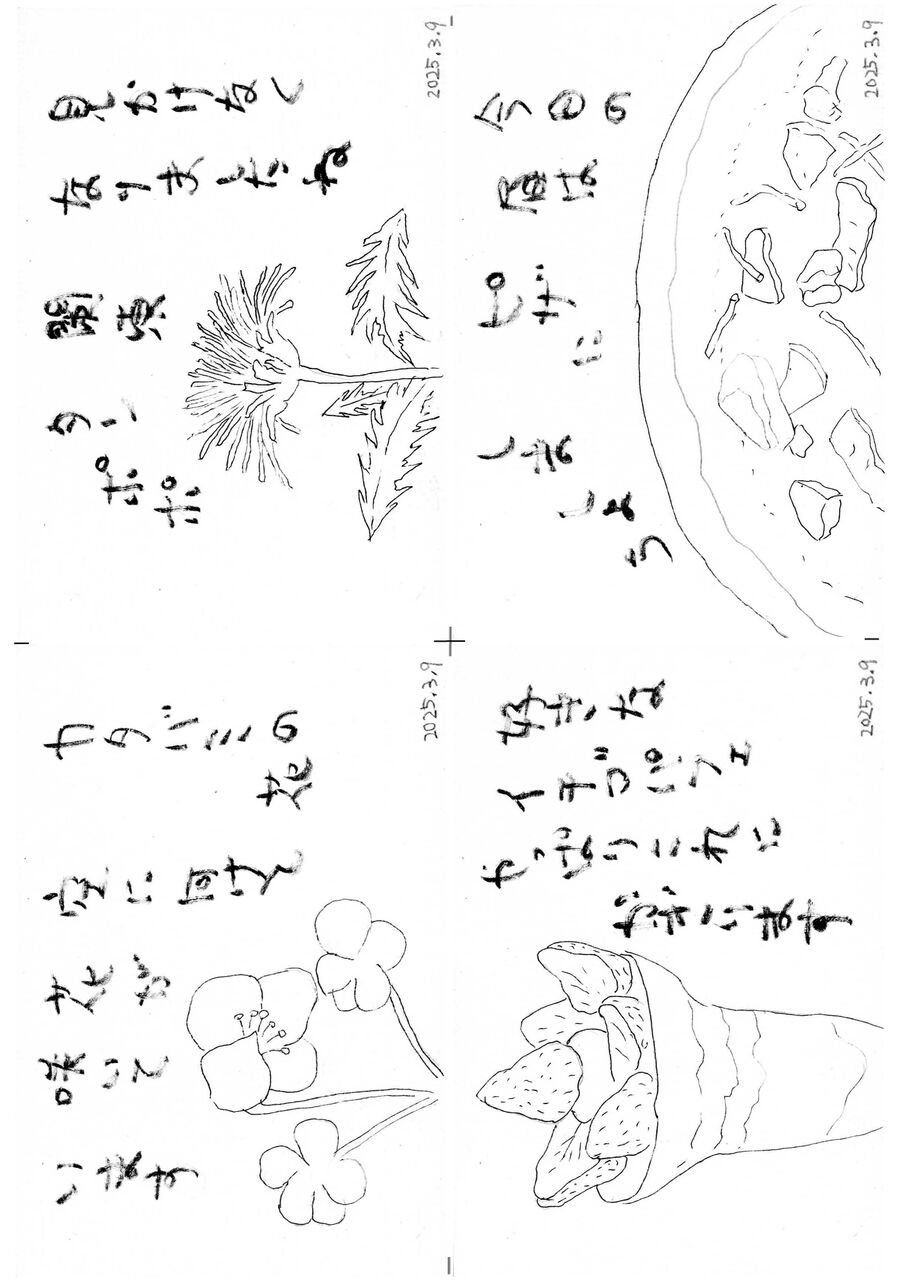 2025.3.9
見かけなく
なりましたね
タンポポ
2025.3.9
今日の
昼は
ピザに
しましょう
2025.3.9
カタバミの
花
空に向けて
花が
咲いて
います
2025.3.9
好きな
イチゴパフェ
やっぱりこれに